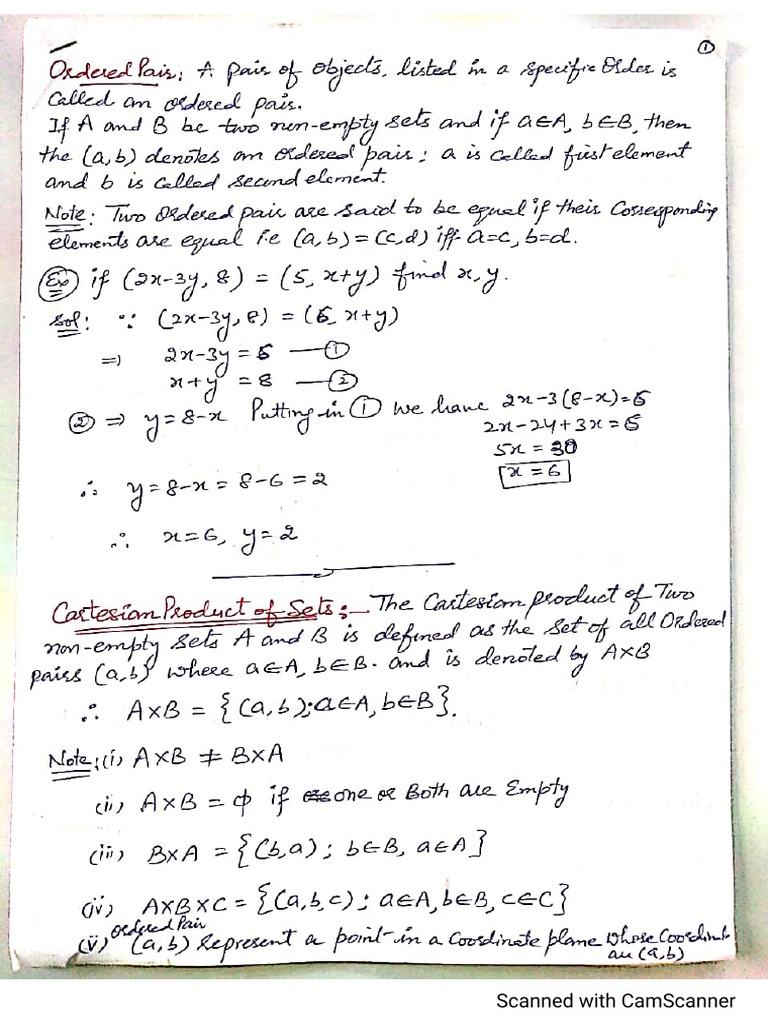 ①
Ordered Pair: A pair of objects, listed in a specific order is
called an ordered pair.
If A and B be two non-empty sets and if a∈A, b∈B, then
the (a,b) denotes an ordered pair; a is called first element
and b is called second element.
Note: Two ordered pair are said to be equal if their corresponding
elements are equal i.e (a,b) = (c,d) iff a=c, b=d.
Ex if (2x-3y, 8) = (5, x+y) find x, y.
Sol: ∵ (2x-3y, 8) = (6, x+y)
=> 2x-3y = 6 —①
x+y = 8 —②
② ⇒ y = 8-x Putting in ① we have 2x-3(8-x)=6
2x-24+3x=6
5x = 30
x = 6
∴ y = 8-x = 8-6 = 2
∴ x=6, y=2
Cartesian Product of Sets:- The Cartesian product of Two
non-empty sets A and B is defined as the set of all ordered
pairs (a,b) where a∈A, b∈B. and is denoted by A×B
∴ A×B = {(a,b); a∈A, b∈B}.
Note: (i) A×B ≠ B×A
(ii) A×B = ϕ if one or Both are Empty
(iii) B×A = {(b,a); b∈B, a∈A}
(iv) A×B×C = {(a,b,c); a∈A, b∈B, c∈C}
(v) ordered Pair (a,b) represent a point in a coordinate plane whose coordinate
are (a,b)
Scanned with CamScanner